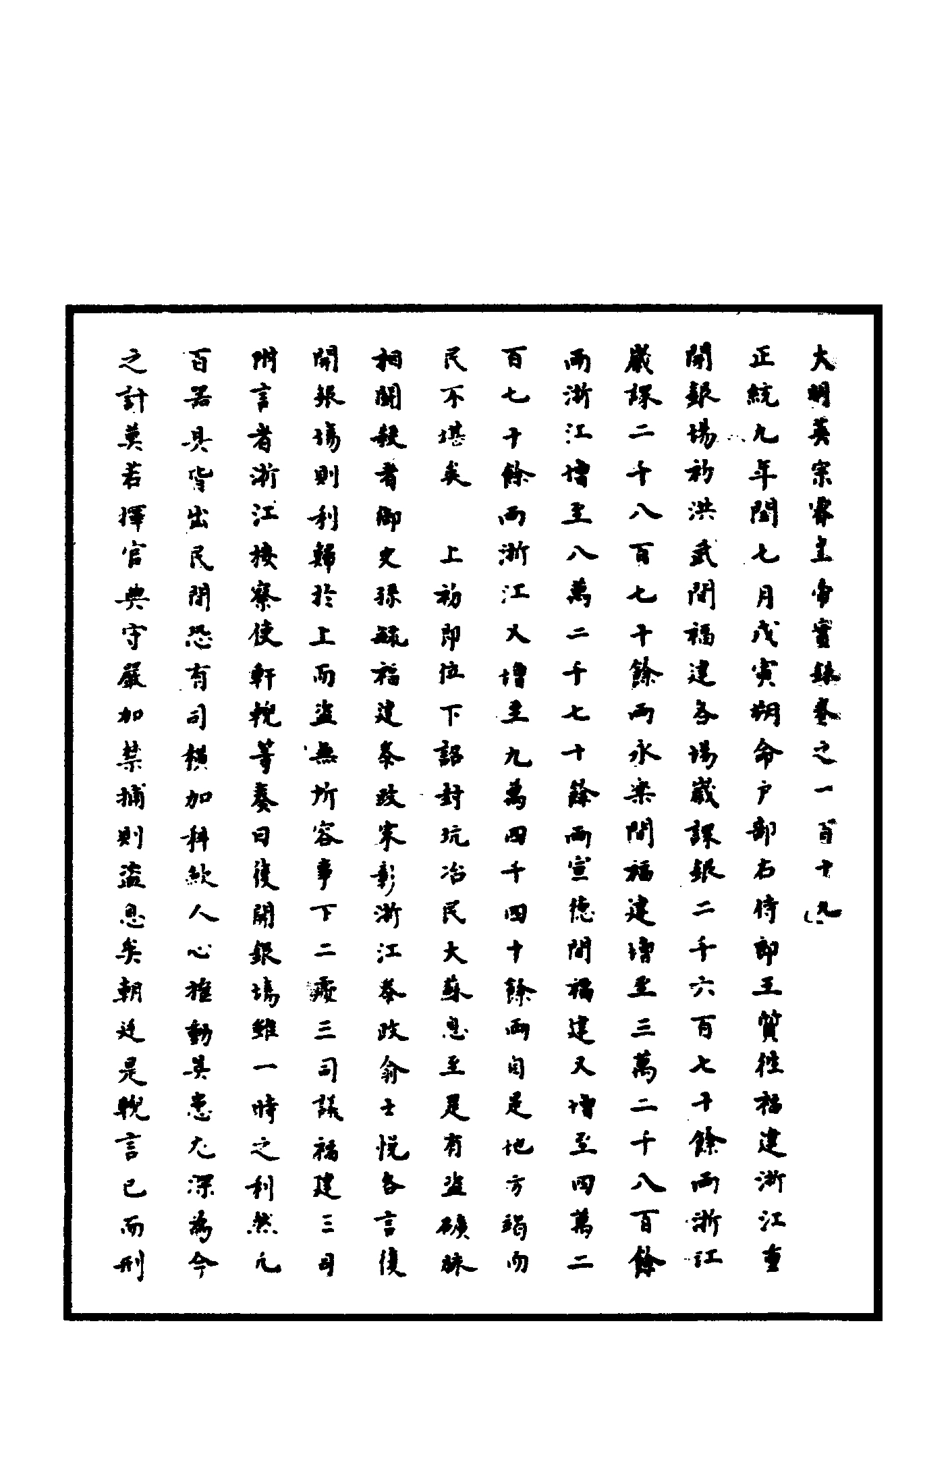 大明英宗睿皇帝實錄卷之一百十九
正統九年閏七月戊寅朔命户部右侍郎王質往福建浙江重
開銀場初洪武間福建各場歲課銀二千六百七十餘兩浙江
歲課二千八百七十餘兩永樂間福建增至三萬二千八百餘
兩浙江增至八萬二千七十餘兩宣德間福建又增至四萬二
百七十餘兩浙江又增至九萬四千四十餘兩自是地方竭而
民不堪矣　上初即位下詔封坑冶民大蘇息至是有盜礦脉
相鬪殺者御史孫毓福建參政宋彰浙江參政俞士悅各言復
開銀場則利歸於上而盜無所容事下二處三司議福建三司
附言者浙江按察使軒輗等奏曰復開銀場雖一時之利然凡
百器具皆出民間恐有司橫加科歛人心搖動其患尤深為今
之計莫若擇官典守嚴加禁捕則盜息矣朝廷是輗言已而刑